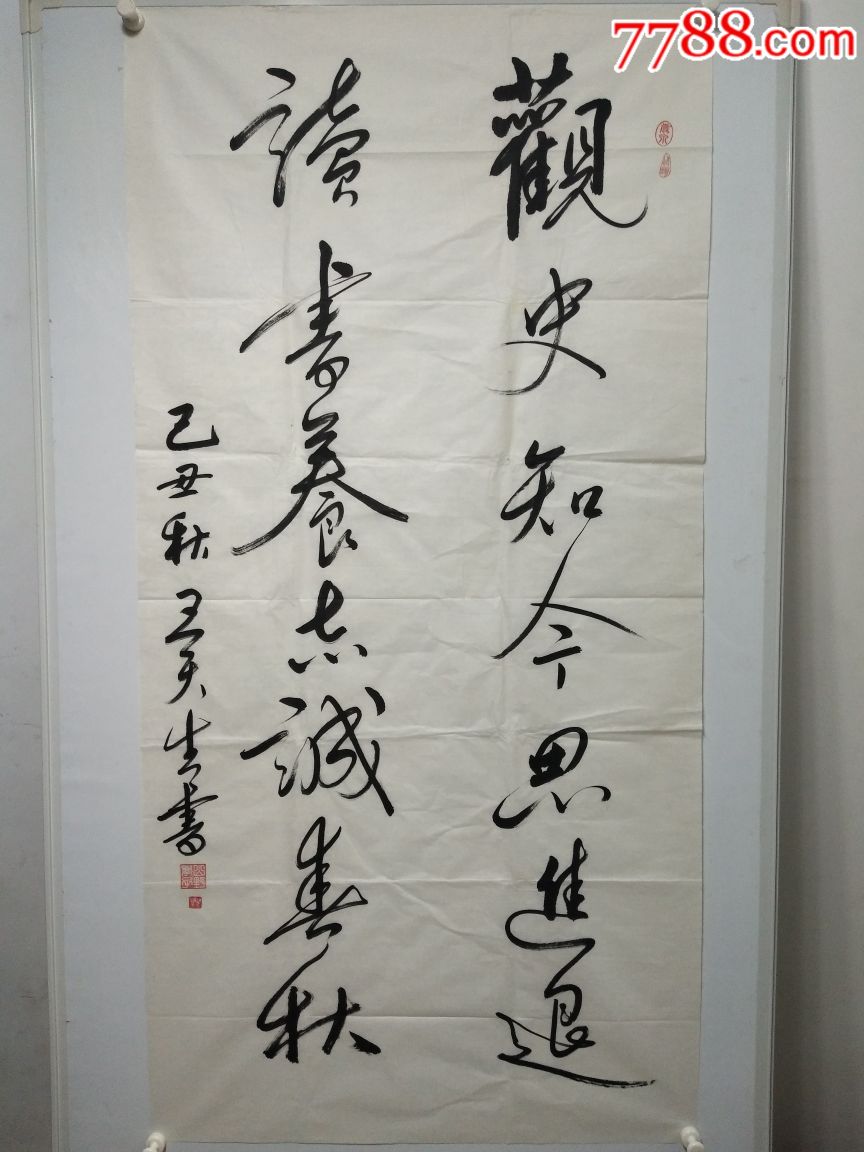 7788.com
觀史知今思進退
讀書養志誠春秋
己丑秋王天生書